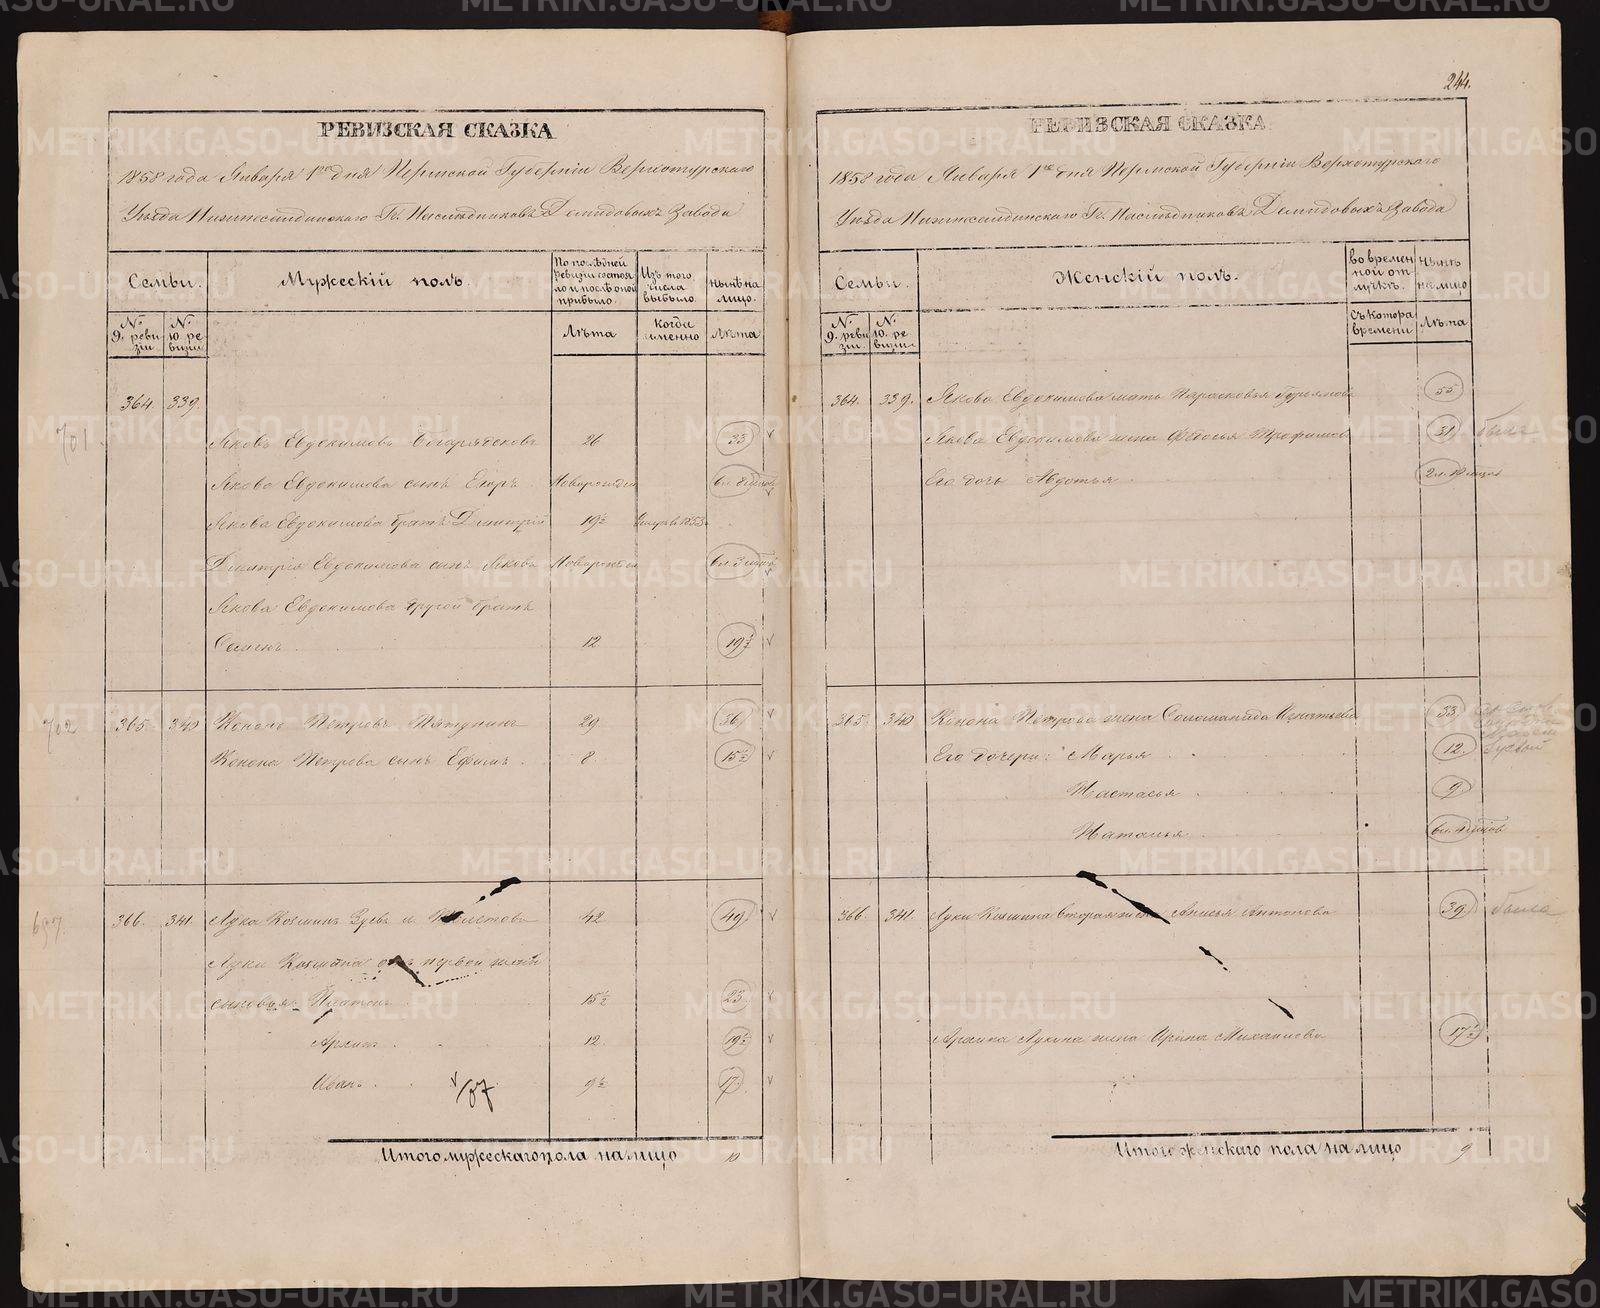 244.
РЕВИЗСКАЯ СКАЗКА
1858 года Января 1го дня Пермской Губерніи Верхотурскаго
Уѣзда Нижнесалдинскаго Гг. Наслѣдниковъ Демидовыхъ Завода
Семьи.
Мужескій полъ.
По послѣдней ревизіи состояло и послѣ оной прибыло.
Изъ того числа выбыло.
Нынѣ на лицо.
№ 9. ревизіи.
№ 10. ревизіи.
Лѣта
Когда именно
Лѣта
364. 339.
701
Яковъ Евдокимовъ 26 33
Якова Евдокимова сынъ Егоръ Новорожден
Якова Евдокимова братъ Дмитрій 19½ 1853
Дмитрія Евдокимова сынъ Яковъ Новорожден
Якова Евдокимова другой братъ
Семенъ 12 19½
702 365. 340 Кононъ Петровъ 29 36
Конона Петрова сынъ Ефимъ 8 15½
697 366. 341. Лука Козминъ 42 49
Луки Козмина отъ первой жены
сыновья: Платонъ 15½ 23
Архипъ 12 19½
Иванъ 9½ 17
Итого мужескаго пола на лицо 10
РЕВИЗСКАЯ СКАЗКА
1858 года Января 1го дня Пермской Губерніи Верхотурскаго
Уѣзда Нижнесалдинскаго Гг. Наслѣдниковъ Демидовыхъ Завода
Семьи.
Женскій полъ.
Во временной отлучкѣ.
Нынѣ на лицо
№ 9. ревизіи.
№ 10. ревизіи.
Съ котора времени
Лѣта
364. 339. Якова Евдокимова мать Парасковья 55
Якова Евдокимова жена Федосья 31
Его дочь Авдотья
365. 340 Конона Петрова жена Соломанида Игнатьева 33
Его дочери: Марья 12.
Настасья 9
Наталья
366. 341. Луки Козмина вторая жена Анисья Антонова 39
Архипа Лукина жена Ирина Михайлова 17½
Итого женскаго пола на лицо 9
METRIKI.GASO-URAL.RU